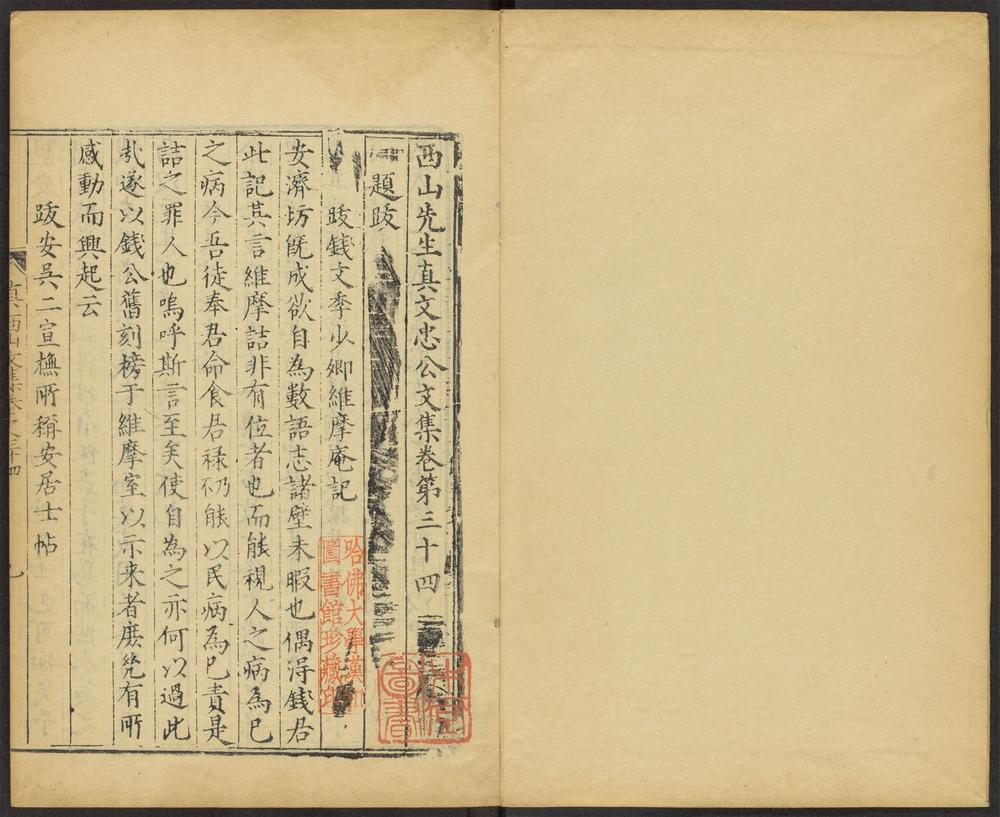 西山先生真文忠公文集卷第三十四
題跋
跋錢文季少卿維摩庵記
安濟坊既成欲自為數語志諸壁未暇也偶淂錢君
此記其言維摩詰非有位者也而能視人之病為已
之病今吾徒奉君命食君禄乃不能以民病為已責是
詰之罪人也嗚呼斯言至矣使自為之亦何以過此
㢤遂以錢公舊刻榜于維摩室以示来者庶㡬有所
感動而興起云
跋安吳二宣撫所稱安居士帖
真西山文集卷之三十四
哈佛大學漢和
圖書館珍藏印